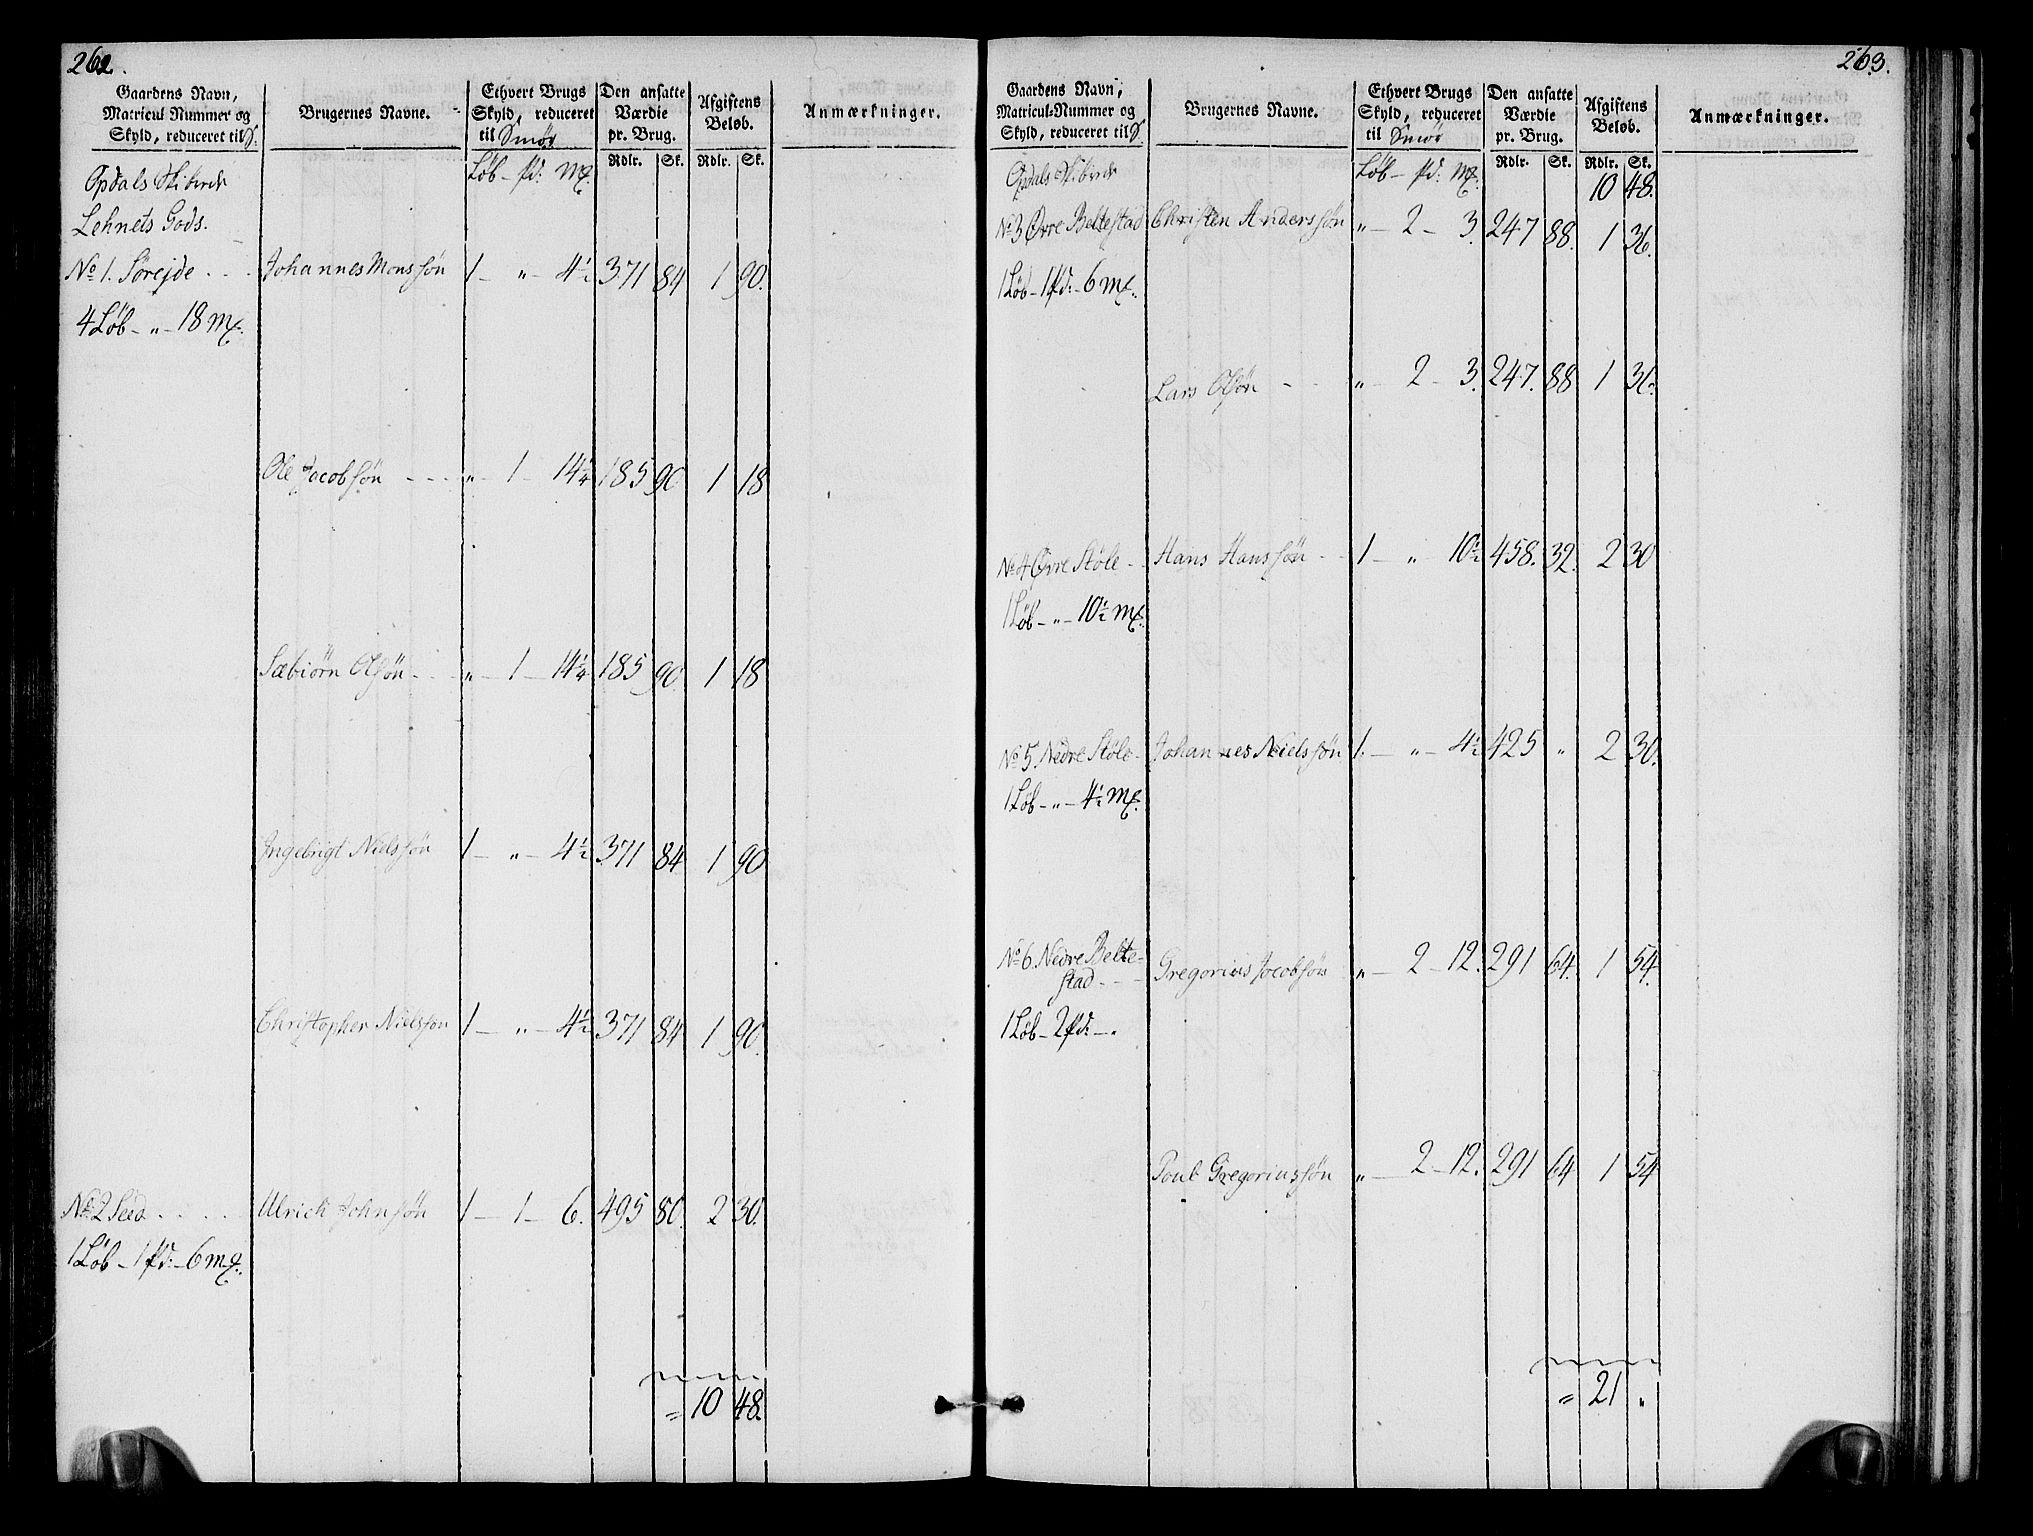 262.
Gaardens Navn, Matricul Nummer og Skyld, reduceret til S. | Brugernes Navne. | Ethvert Brugs Skyld, reduceret til Smör | Den ansatte Værdie pr. Brug. | Afgiftens Beløb. | Anmærkninger.
Løb - pd: mk. | Rdlr. | Sk. | Rdlr. | Sk.
Opdals Skibrede
Lehnets Gods.
No 1. Sörejde - - Johannes Monssøn 1 - " - 4½ 371 84 1 90.
4 Løb - " - 18 mk.
Ole Jacobsøn - - - " - 1 - 14¼ 185 90 1 18
Sæbiörn Olsøn - - " - 1 - 14¼ 185 90. 1 18
Ingebrigt Nielssøn 1 - " - 4½ 371 84 1 90
Christopher Nielssøn 1 - " - 4½ 371 84 1 90.
No 2 . . . . Ulrich Johnsøn 1 - 1 - 6. 495 80. 2 30.
1 Løb - 1 pd: - 6 mk.
= 10 48.
263.
Gaardens Navn, Matricul-Nummer og Skyld, reduceret til S. | Brugernes Navne. | Ethvert Brugs Skyld, reduceret til Smör | Den ansatte Værdie pr. Brug. | Afgiftens Beløb. | Anmærkninger.
Løb - pd: mk. | Rdlr. | Sk. | Rdlr. | Sk.
Opdals Skibrede 10 48.
No 3 Øvre Beltestad Christen Anderssøn " - 2 - 3. 247 88. 1 36.
1 Løb - 1 pd: - 6 mk.
Lars Olsøn - - " - 2 - 3. 247. 88 1 36.
No 4 Øvre Støle - - Hans Hanssøn - - 1 - " 10½ 458. 32. 2 30
1 Løb - " - 10½ mk.
No 5. Nedre Støle - Johannes Nielssøn 1. - " - 4½ 425 " 2 30.
1 Løb - " - 4½ mk.
No 6. Nedre Belte-
stad - - - Gregorius Jacobsøn " - 2 - 12. 291 64. 1 54
1 Løb - 2 pd: - "
Poul Gregoriussøn " - 2 - 12. 291 64 1 54
= 21 "